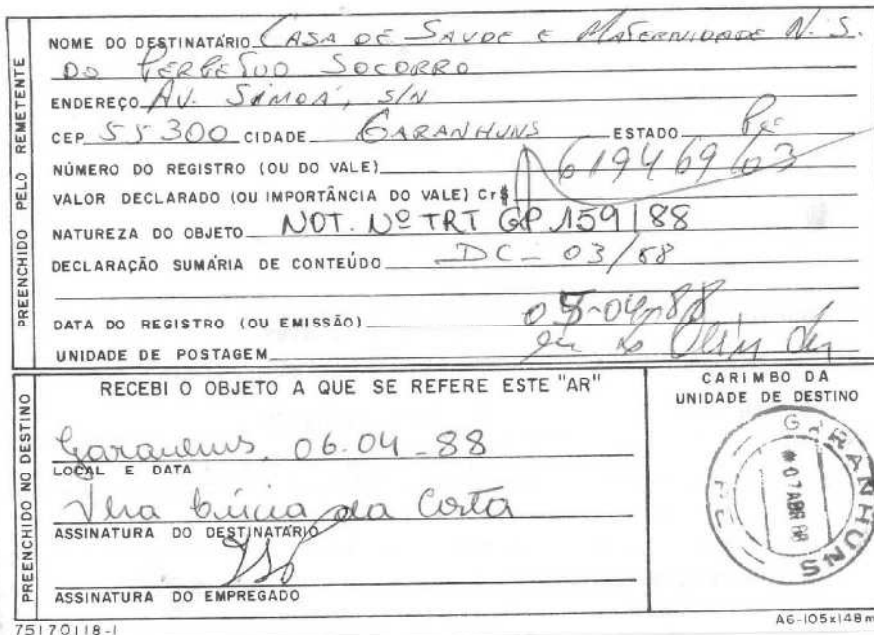 PREENCHIDO PELO REMETENTE
NOME DO DESTINATÁRIO CASA DE SAUDE E MATERNIDADE N. S.
DO PERPETUO SOCORRO
ENDEREÇO AV. SIMOA, S/N
CEP 55300 CIDADE GARANHUNS ESTADO Pe
NÚMERO DO REGISTRO (OU DO VALE) 619469/03
VALOR DECLARADO (OU IMPORTÂNCIA DO VALE) Cr$
NATUREZA DO OBJETO NOT. Nº TRT GP 159/88
DECLARAÇÃO SUMÁRIA DE CONTEÚDO DC - 03/88
DATA DO REGISTRO (OU EMISSÃO) 05-04-88
UNIDADE DE POSTAGEM
PREENCHIDO NO DESTINO
RECEBI O OBJETO A QUE SE REFERE ESTE "AR"
Garanhuns, 06.04-88
LOCAL E DATA
Vera Lúcia da Costa
ASSINATURA DO DESTINATÁRIO
ASSINATURA DO EMPREGADO
CARIMBO DA
UNIDADE DE DESTINO
GARANHUNS
07 ABR 88
PE
75170118-1
A6-105x148m